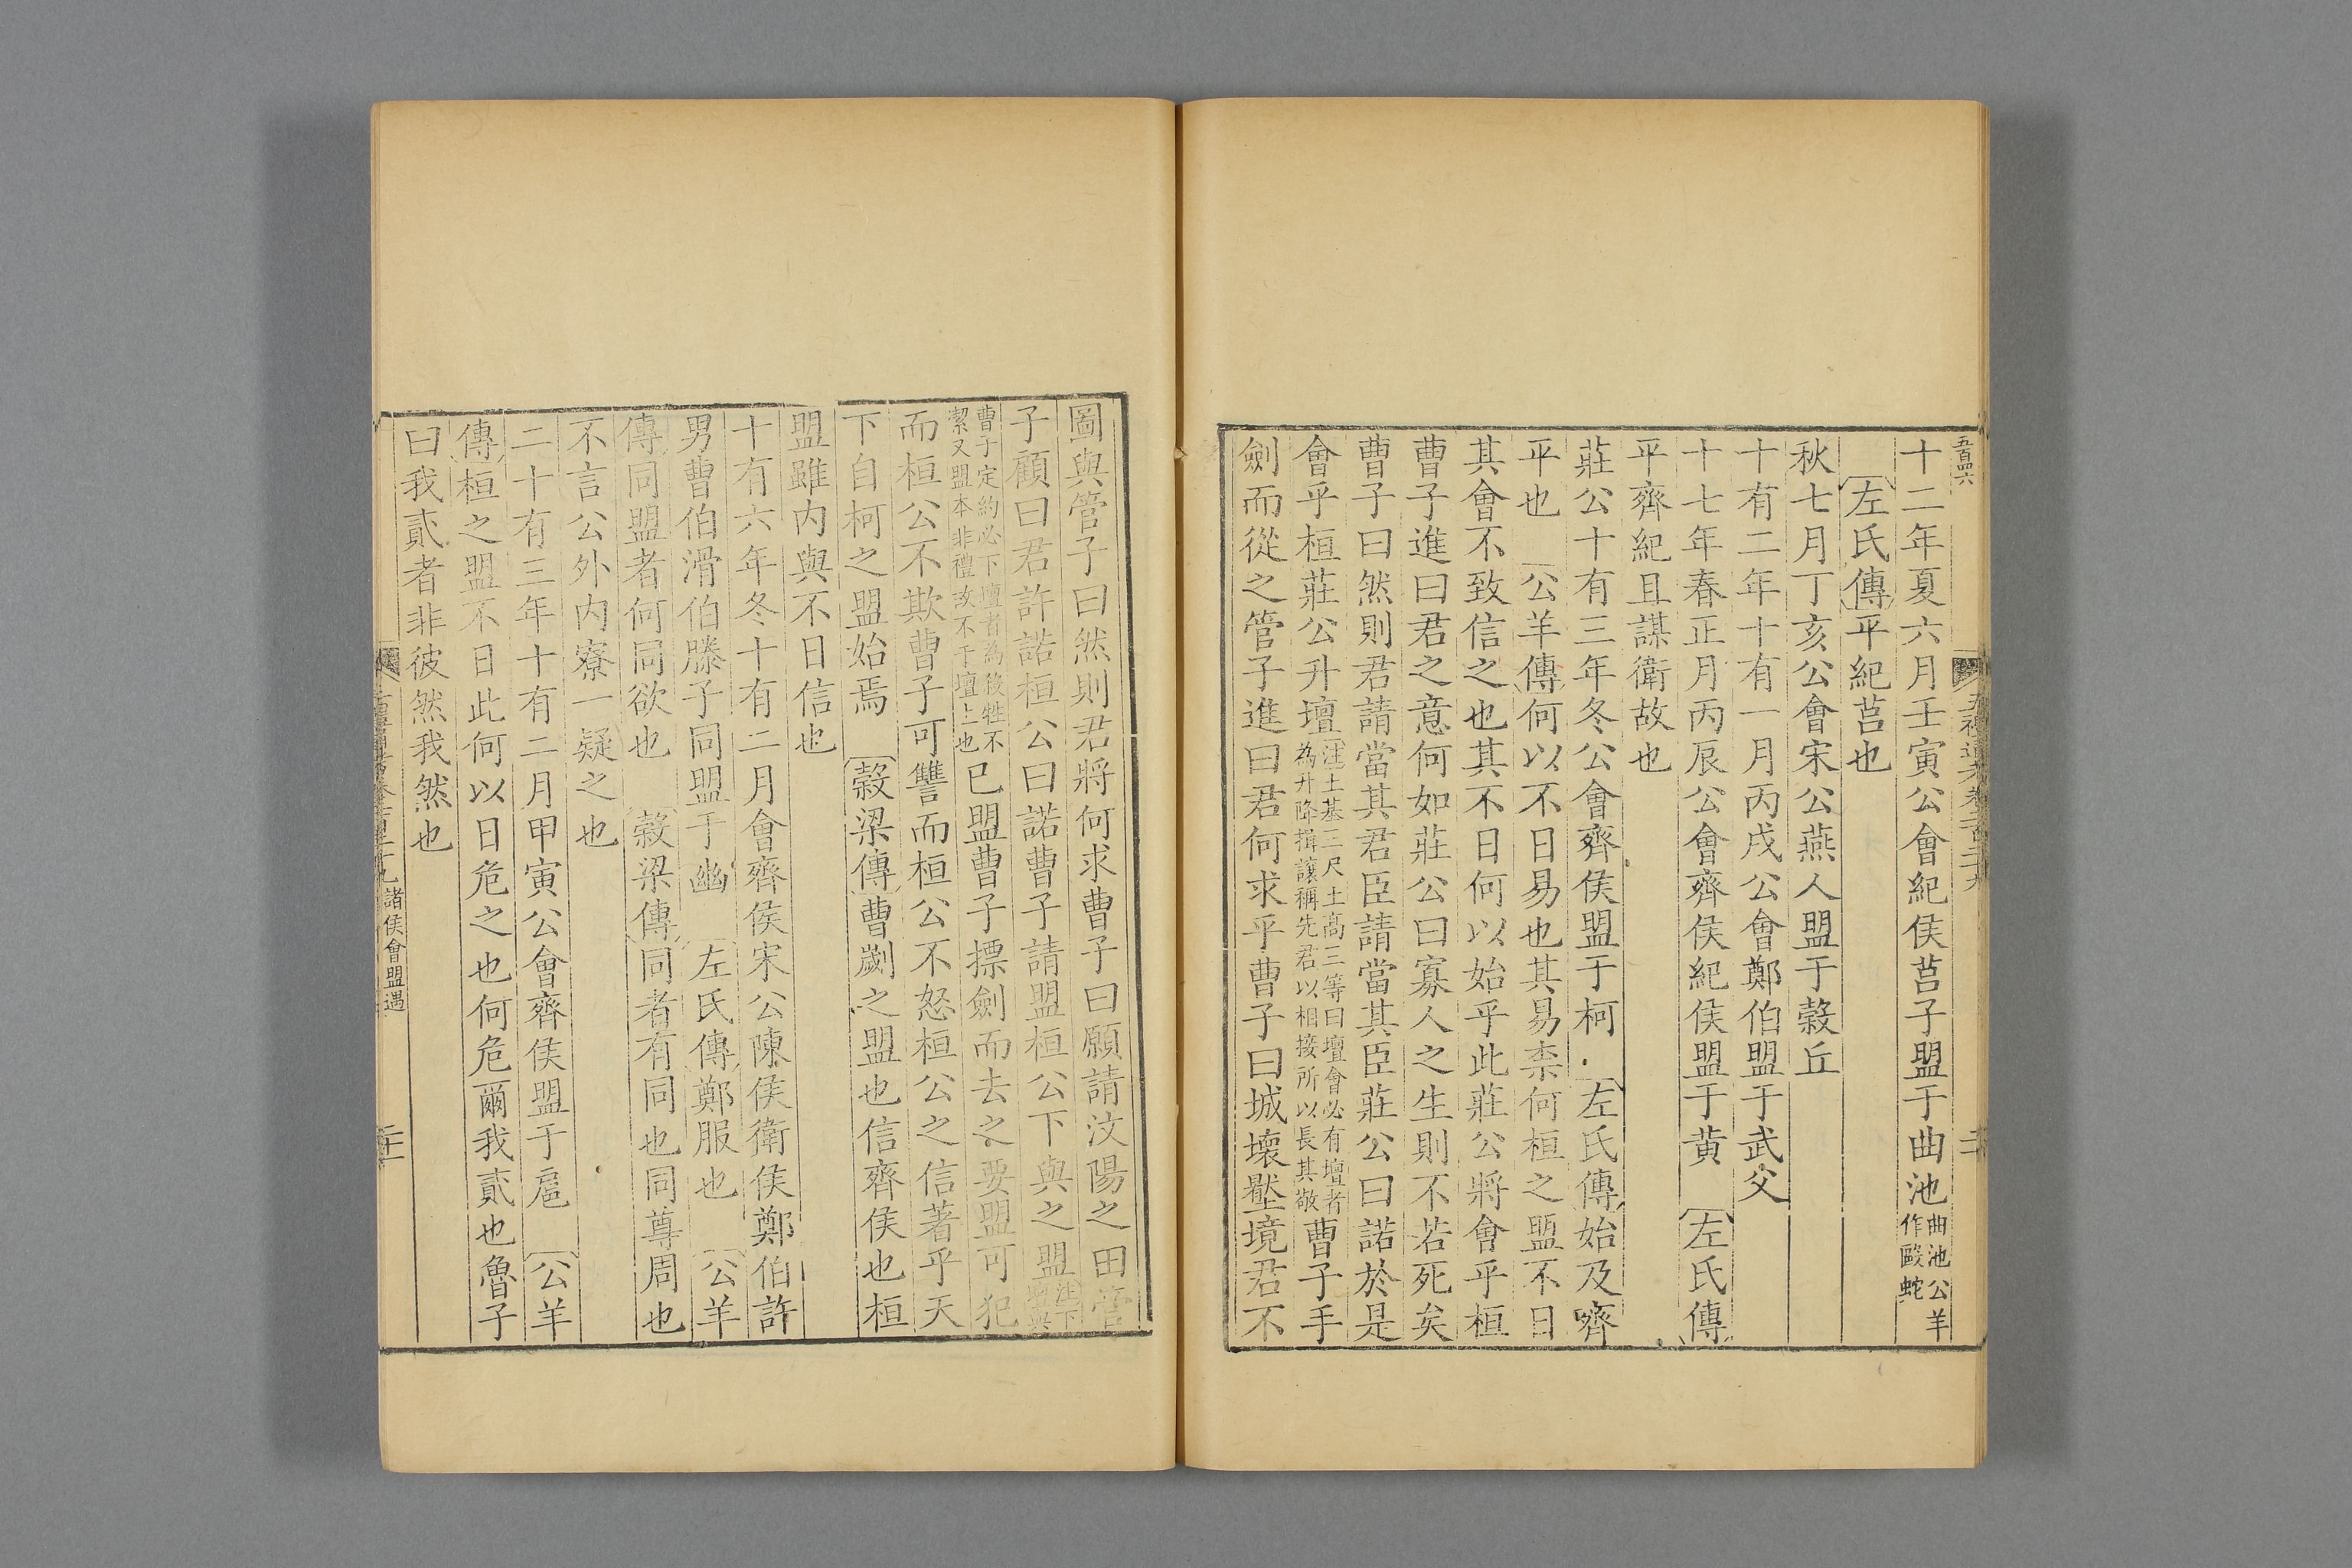 五百四六
十二年夏六月壬寅公會紀侯莒子盟于曲池曲池公羊作毆蛇
左氏傳平紀莒也
秋七月丁亥公會宋公燕人盟于榖丘
十有二年十有一月丙戌公會鄭伯盟于武父
十七年春正月丙辰公會齊侯紀侯盟于黄 左氏傳
平齊紀且謀衛故也
莊公十有三年冬公會齊侯盟于柯 左氏傳始及齊
平也 公羊傳何以不日易也其易柰何桓之盟不日
其會不致信之也其不日何以始乎此莊公將會乎桓
曹子進曰君之意何如莊公曰寡人之生則不若死矣
曹子曰然則君請當其君臣請當其臣莊公曰諾於是
會乎桓莊公升壇注土基三尺土高三等曰壇會必有壇者為升降揖讓稱先君以相接所以長其敬曹子手
劍而從之管子進曰君何求乎曹子曰城壞壓境君不
圖與管子曰然則君將何求曹子曰願請汶陽之田管
子顧曰君許諾桓公曰諾曹子請盟桓公下與之盟注下壇與
曹子定約必下壇者為殺牲不潔又盟本非禮故不于壇上也已盟曹子摽劍而去之要盟可犯
而桓公不欺曹子可讐而桓公不怒桓公之信著乎天
下自柯之盟始焉 榖梁傳曹劌之盟也信齊侯也桓
盟雖内與不日信也
十有六年冬十有二月會齊侯宋公陳侯衛侯鄭伯許
男曹伯滑伯滕子同盟于幽 左氏傳鄭服也 公羊
傳同盟者何同欲也 榖梁傳同者有同也同尊周也
不言公外内寮一疑之也
二十有三年十有二月甲寅公會齊侯盟于扈 公羊
傳桓之盟不日此何以日危之也何危爾我貳也魯子
曰我貳者非彼然我然也
諸侯會盟遇